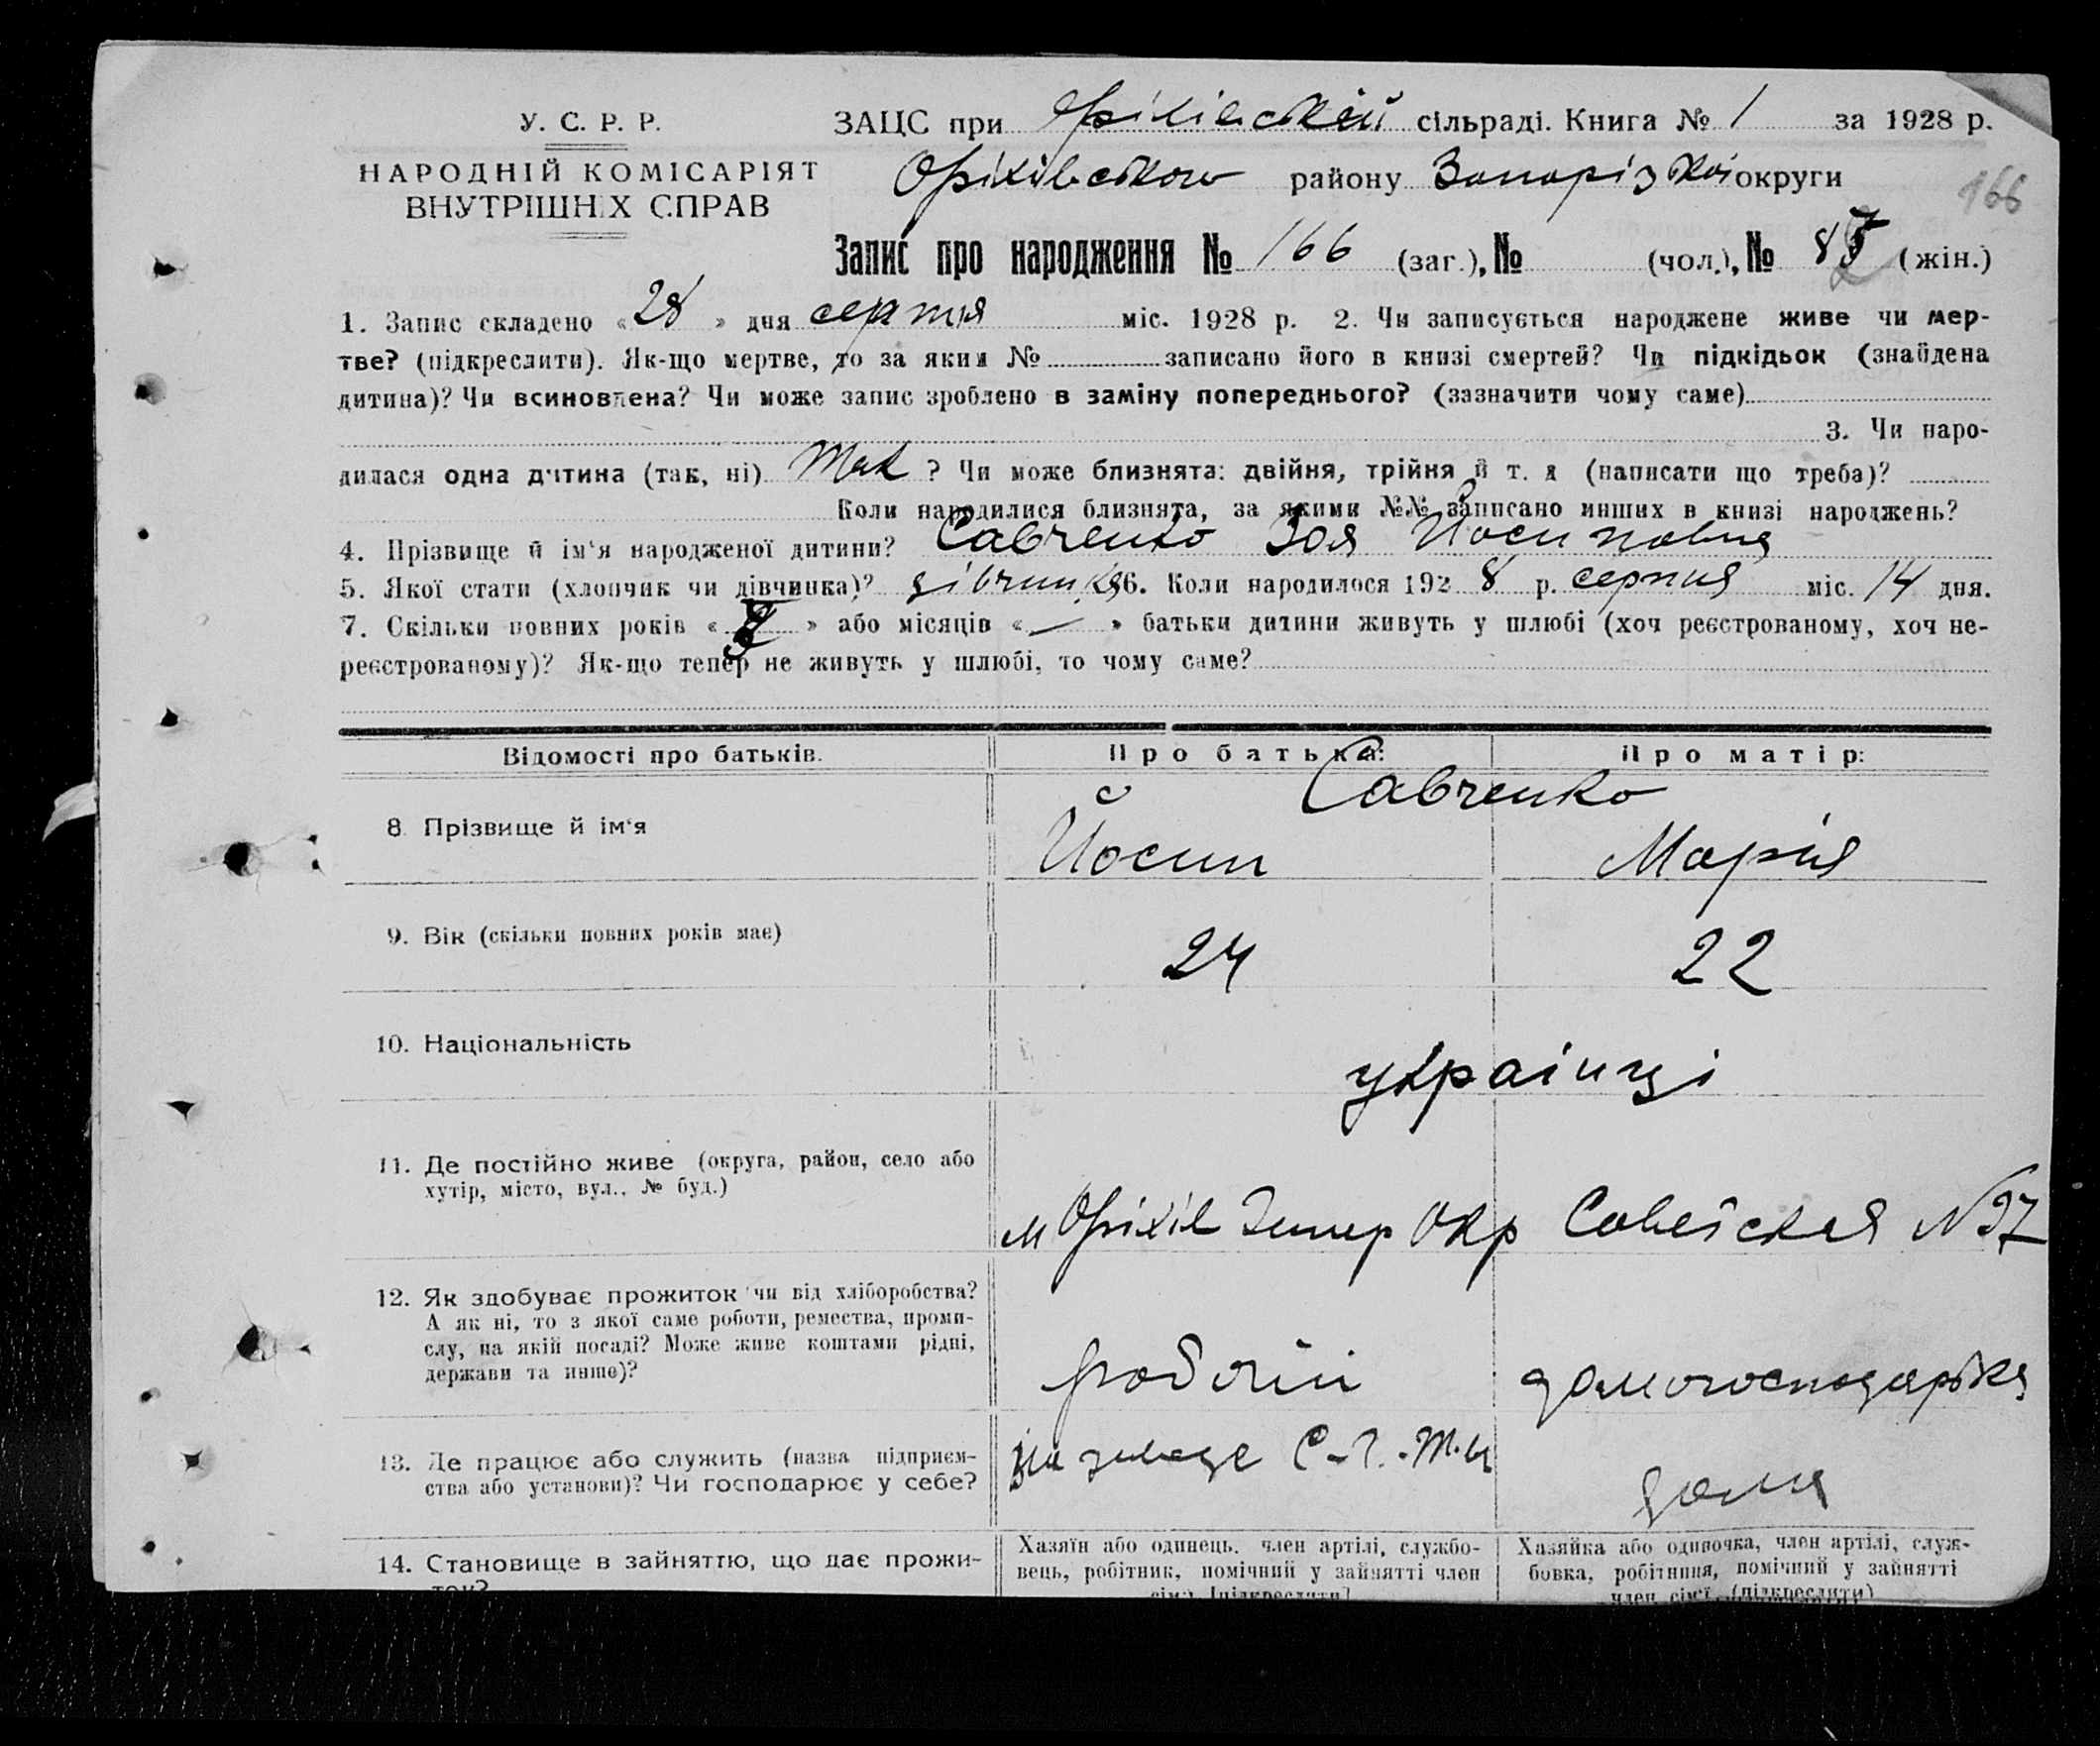 У. С. Р. Р.
НАРОДНІЙ КОМІСАРІЯТ
ВНУТРІШНІХ СПРАВ
ЗАЦС при Оріхівській сільраді. Книга № 1 за 1928 р.
Оріхівського району Запорізької округи
166
Запис про народження № 166 (заг.), № (чол.), № 8 (жін.)
1. Запис складено «28» дня серпня міс. 1928 р. 2. Чи записується народжене живе чи мер-
тве? (підкреслити). Як-що мертве, то за яким № записано його в книзі смертей? Чи підкідьок (знайдена
дитина)? Чи всиновлена? Чи може запис зроблено в заміну попереднього? (зазначити чому саме)
3. Чи наро-
дилася одна дитина (так, ні) Так ? Чи може близнята: двійня, трійня й т. д (написати що треба)?
Коли народилися близнята, за якими №№ записано инших в книзі народжень?
4. Прізвище й ім‘я народженої дитини? Савченко Зоя Йосиповна
5. Якої стати (хлопчик чи дівчинка)? дівчинка 6. Коли народилося 1928 р. серпня міс. 14 дня.
7. Скільки повних років « » або місяців «—» батьки дитини живуть у шлюбі (хоч реєстрованому, хоч не-
реєстрованому)? Як-що тепер не живуть у шлюбі, то чому саме?
Відомості про батьків. Про батька: Про матір:
Савченко
8 Прізвище й ім‘я Йосип Марія
9. Вік (скільки повних років має) 24 22
10. Національність українці
11. Де постійно живе (округа, район, село або
хутір, місто, вул., № буд.)
м Оріхів Запор Окр Советская №97
12. Як здобуває прожиток чи від хліборобства?
А як ні, то з якої саме роботи, ремества, проми-
слу, на якій посаді? Може живе коштами рідні,
держави та инше)?
робочій домогосподарька
13. Де працює або служить (назва підприєм-
ства або установи)? Чи господарює у себе?
на заводе С-Г.-М. дома
14. Становище в зайняттю, що дає прожи-
ток?
Хазяїн або одинець, член артілі, службо-
вець, робітник, помічний у зайнятті член
сім‘ї [підкреслити]
Хазяйка або одиночка, член артілі, служ-
бовка, робітниця, помічний у зайнятті
член сім‘ї (підкреслити)